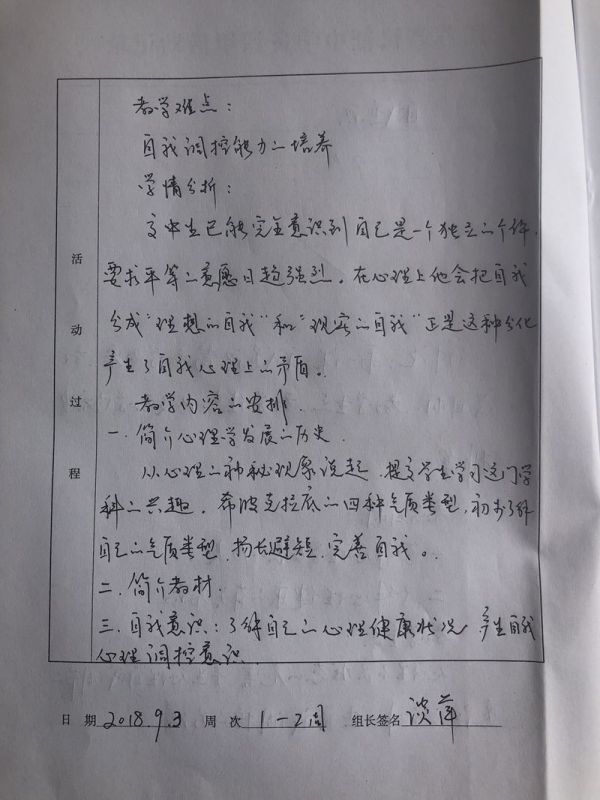 教学难点：
自我调控能力的培养
学情分析：
高中生已能完全意识到自己是一个独立的个体，
要求平等的意愿日趋强烈。在心理上他会把自我
分成"理想的自我"和"现实的自我"正是这种分化
产生了自我心理上的矛盾。
教学内容的安排.
一. 简介心理学发展的历史.
从心理的神秘现象说起. 提高学生学习这门学
科的兴趣. 希波克拉底的四种气质类型, 初步了解
自己的气质类型. 扬长避短. 完善自我。
二. 简介教材.
三. 自我意识：了解自己的心理健康状况 产生自我
心理调控意识.
活动过程
日 期 2018.9.3 周 次 1-2周 组长签名 谈萍